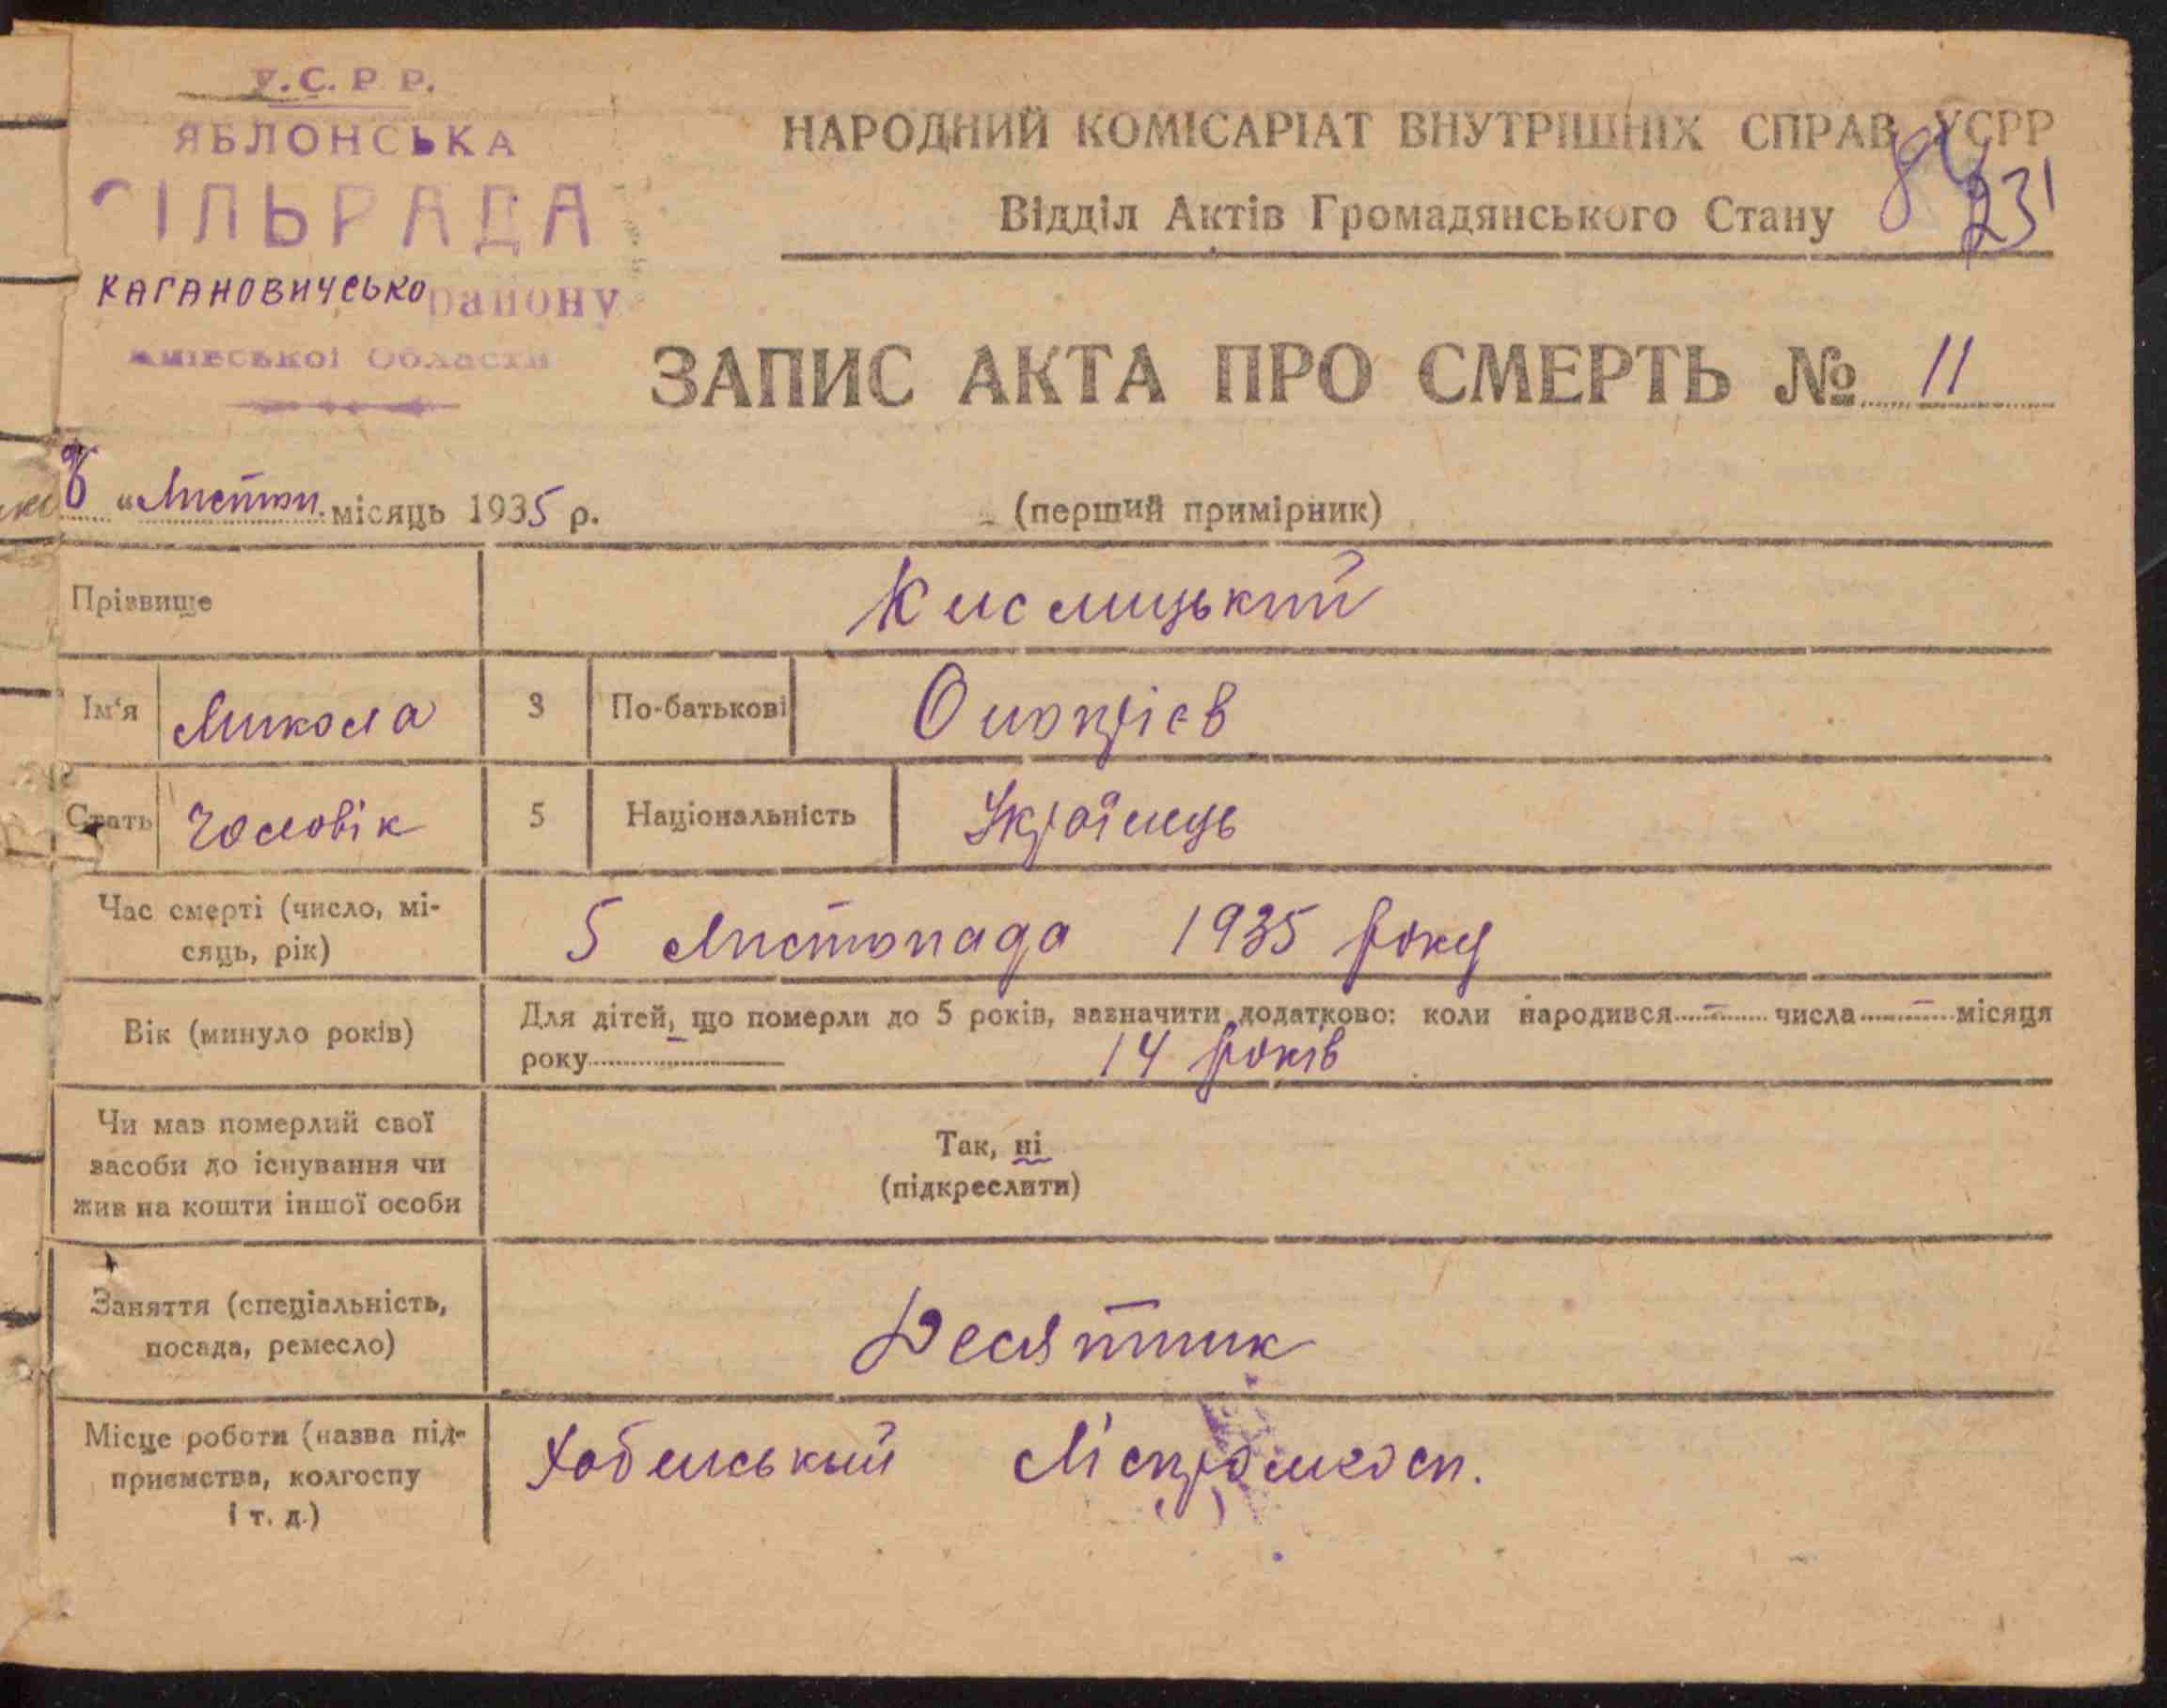 У.С.Р.Р.
ЯБЛОНСЬКА
СІЛЬРАДА
КАГАНОВИЧСЬКО району
Київської Області
НАРОДНИЙ КОМІСАРІАТ ВНУТРІШНІХ СПРАВ УСРР
Відділ Актів Громадянського Стану
231
ЗАПИС АКТА ПРО СМЕРТЬ № 11
"Листоп. місяць 1935 р.
(перший примірник)
Прізвище Кислицький
Ім'я Микола 3 По-батькові
Стать Чоловік 5 Національність Українець
Час смерті (число, мі-
сяць, рік) 5 Листопада 1935 року
Вік (минуло років) Для дітей, що померли до 5 років, зазначити додатково: коли народився — числа — місяця
року — 14 років
Чи мав померлий свої
засоби до існування чи
жив на кошти іншої особи
Так, ні
(підкреслити)
Заняття (спеціальність,
посада, ремесло) Десятник
Місце роботи (назва під-
приємства, колгоспу
і т. д.)
Хабенський Ліспромгосп.